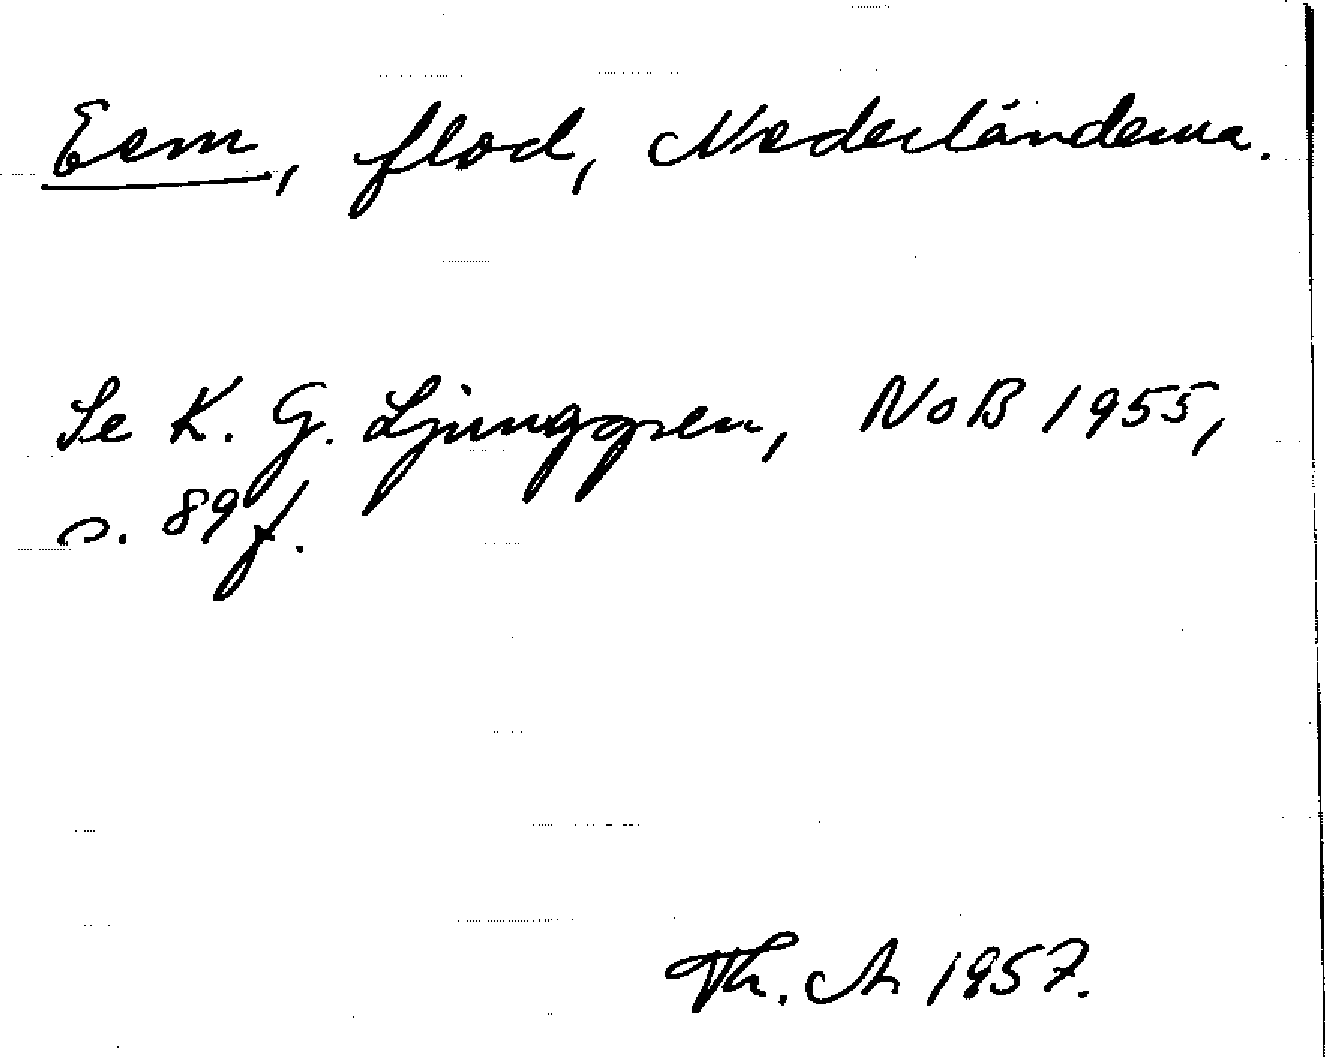 Eem, flod, Nederländerna.
Se K. G. Ljunggren, NoB 1955,
s. 89 f.
Th. A 1957.